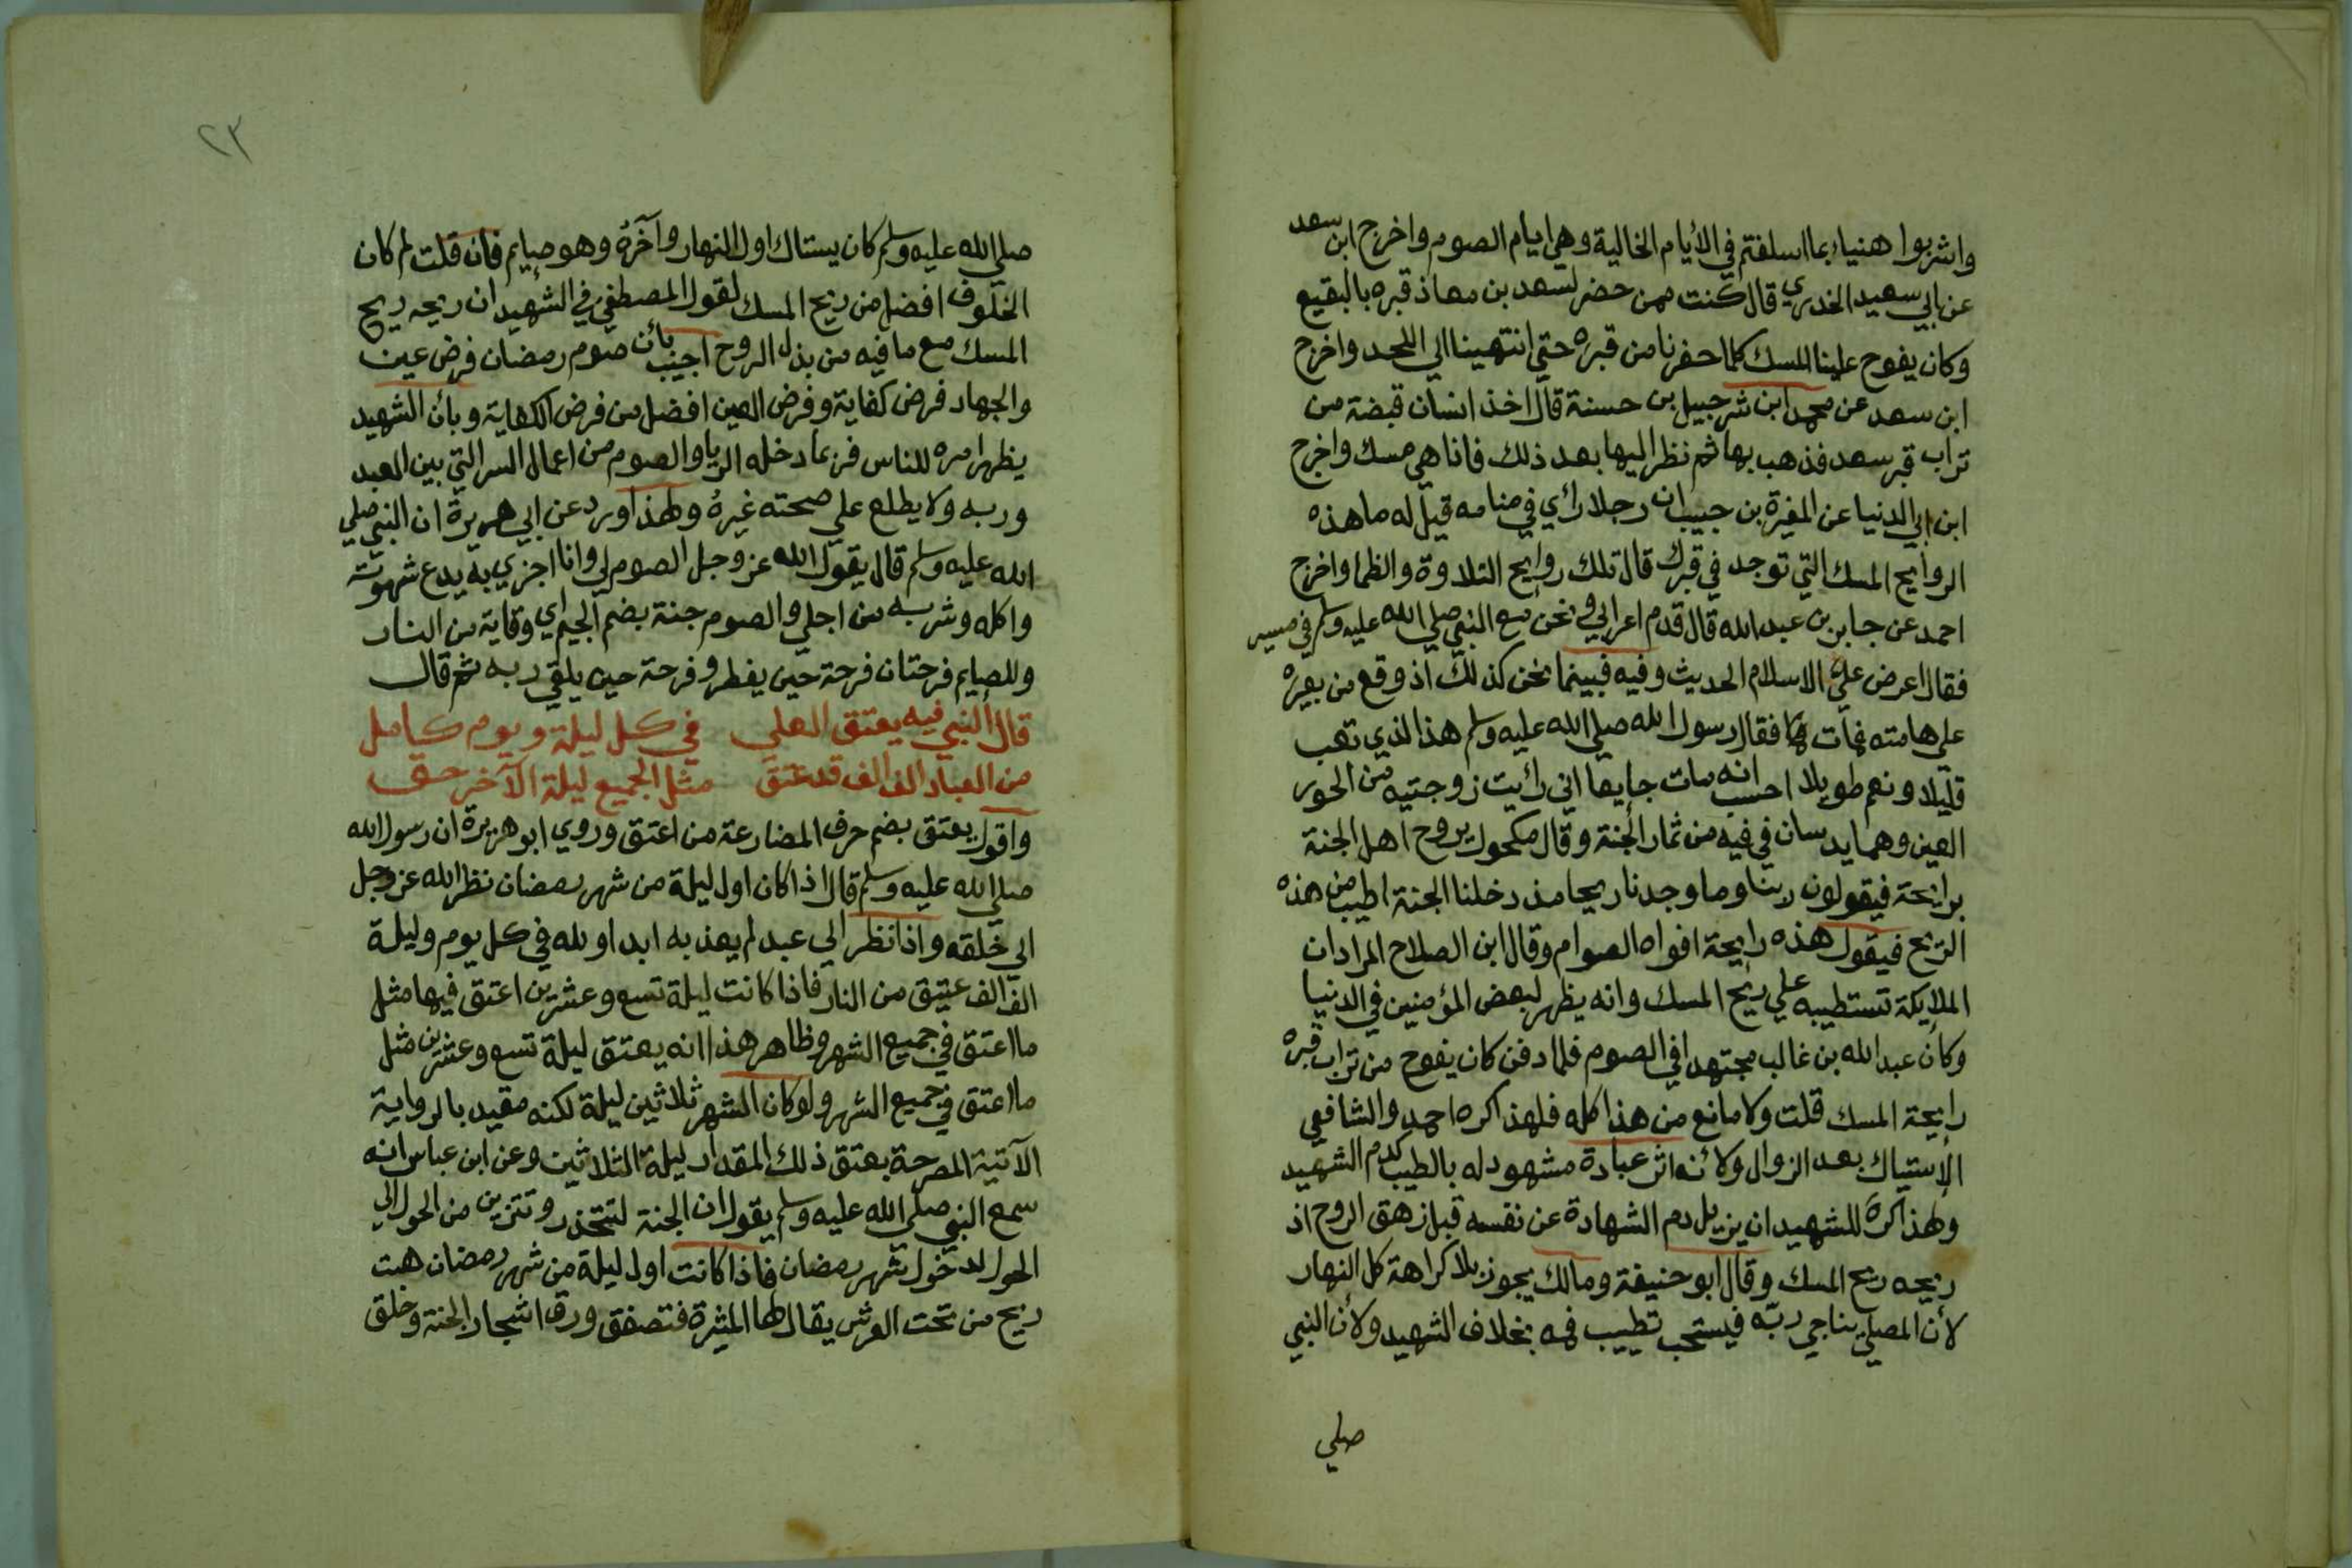 واشربوا هنياء بما اسلفتم في الأيام الخالية وهي ايام الصوم واخرج ابن سعد
عن ابي سعيد الخدري قال كنت ممن حضر لسعد بن معاذ قبره بالبقيع
وكان يفوح علينا المسك كلما حفرنا من قبره حتي انتهينا الي اللحد واخرج
ابن سعد عن محمد ابن شرحبيل بن حسنة قال اخذ انسان قبضة من
تراب قبر سعد فذهب بها ثم نظر اليها بعد ذلك فاذا هي مسك واخرج
ابن ابي الدنيا عن المغيرة بن حبيب ان رجلا رأي في منامه قيل له ما هذه
الروايح المسك التي توجد في قبرك قال تلك روايح التلاوة والظما واخرج
احمد عن جابر بن عبد الله قال قدم اعرابي ونحن مع النبي صلي الله عليه وسلم في مسير
فقال اعرض علي الاسلام الحديث وفيه فبينما نحن كذلك اذ وقع من بعيره
علي هامته فمات فقال رسول الله صلي الله عليه وسلم هذا الذي تعب
قليلا ونعم طويلا احسب انه مات جايعا اني رأيت زوجتيه من الحور
العين وهما يدسان في فيه من ثمار الجنة وقال مكحول يروح اهل الجنة
برائحة فيقولون ربنا وما وجدنا ريحا مذ دخلنا الجنة اطيب من هذه
الريح فيقول هذه رايحة افواه الصوام وقال ابن الصلاح المراد ان
الملايكة تستطيبه علي ريح المسك وانه يظهر لبعض المؤمنين في الدنيا
وكان عبد الله بن غالب مجتهدا في الصوم فلما دفن كان يفوح من تراب قبره
رايحة المسك قلت ولا مانع من هذا كله فلهذا كره احمد والشافعي
الاستياك بعد الزوال ولأنه اثر عبادة مشهود له بالطيب كدم الشهيد
ولهذا كره للشهيد ان يزيل دم الشهادة عن نفسه قبل زهق الروح اذ
ريحه ريح المسك وقال ابو حنيفة ومالك يجوز بلا كراهة كل النهار
لأن المصلي يناجي ربه فيستحب تطييب فمه بخلاف الشهيد ولأن النبي
صلي
٢٣
صلي الله عليه وسلم كان يستاك اول النهار وآخره وهو صايم فان قلت لم كان
الخلوف افضل من ريح المسك لقول المصطفي في الشهيد ان ريحه ريح
المسك مع ما فيه من بذل الروح اجيب بأن صوم رمضان فرض عين
والجهاد فرض كفاية وفرض العين افضل من فرض الكفاية وبأن الشهيد
يظهر امره للناس فربما دخله الريا والصوم من اعمال السر التي بين العبد
وربه ولا يطلع علي صحته غيره ولهذا ورد عن ابي هريرة ان النبي صلي
الله عليه وسلم قال يقول الله عز وجل الصوم لي وانا اجزي به يدع شهوته
واكله وشربه من اجلي والصوم جنة بضم الجيم اي وقاية من النار
وللصايم فرحتان فرحة حين يفطر وفرحة حين يلقي ربه ثم قال
قال النبي فيه يعتق العلي في كل ليلة ويوم كامل
من العباد الف الف قد عتق مثل الجميع ليلة الآخر حق
واقول يعتق بضم حرف المضارعة من اعتق وروي ابو هريرة ان رسول الله
صلي الله عليه وسلم قال اذا كان اول ليلة من شهر رمضان نظر الله عز وجل
الي خلقه واذا نظر الي عبد لم يعذبه ابدا ولله في كل يوم وليلة
الف الف عتيق من النار فاذا كانت ليلة تسع وعشرين اعتق فيها مثل
ما اعتق في جميع الشهر وظاهر هذا انه يعتق ليلة تسع وعشرين مثل
ما اعتق في جميع الشهر ولو كان الشهر ثلاثين ليلة لكنه مقيد بالرواية
الآتية المصرحة بعتق ذلك المقدار ليلة الثلاثين وعن ابن عباس انه
سمع النبي صلي الله عليه وسلم يقول ان الجنة لتتخذر وتتزين من الحول الي
الحول لدخول شهر رمضان فاذا كانت اول ليلة من شهر رمضان هبت
ريح من تحت العرش يقال لها المثيرة فتصفق ورق اشجار الجنة وخلق